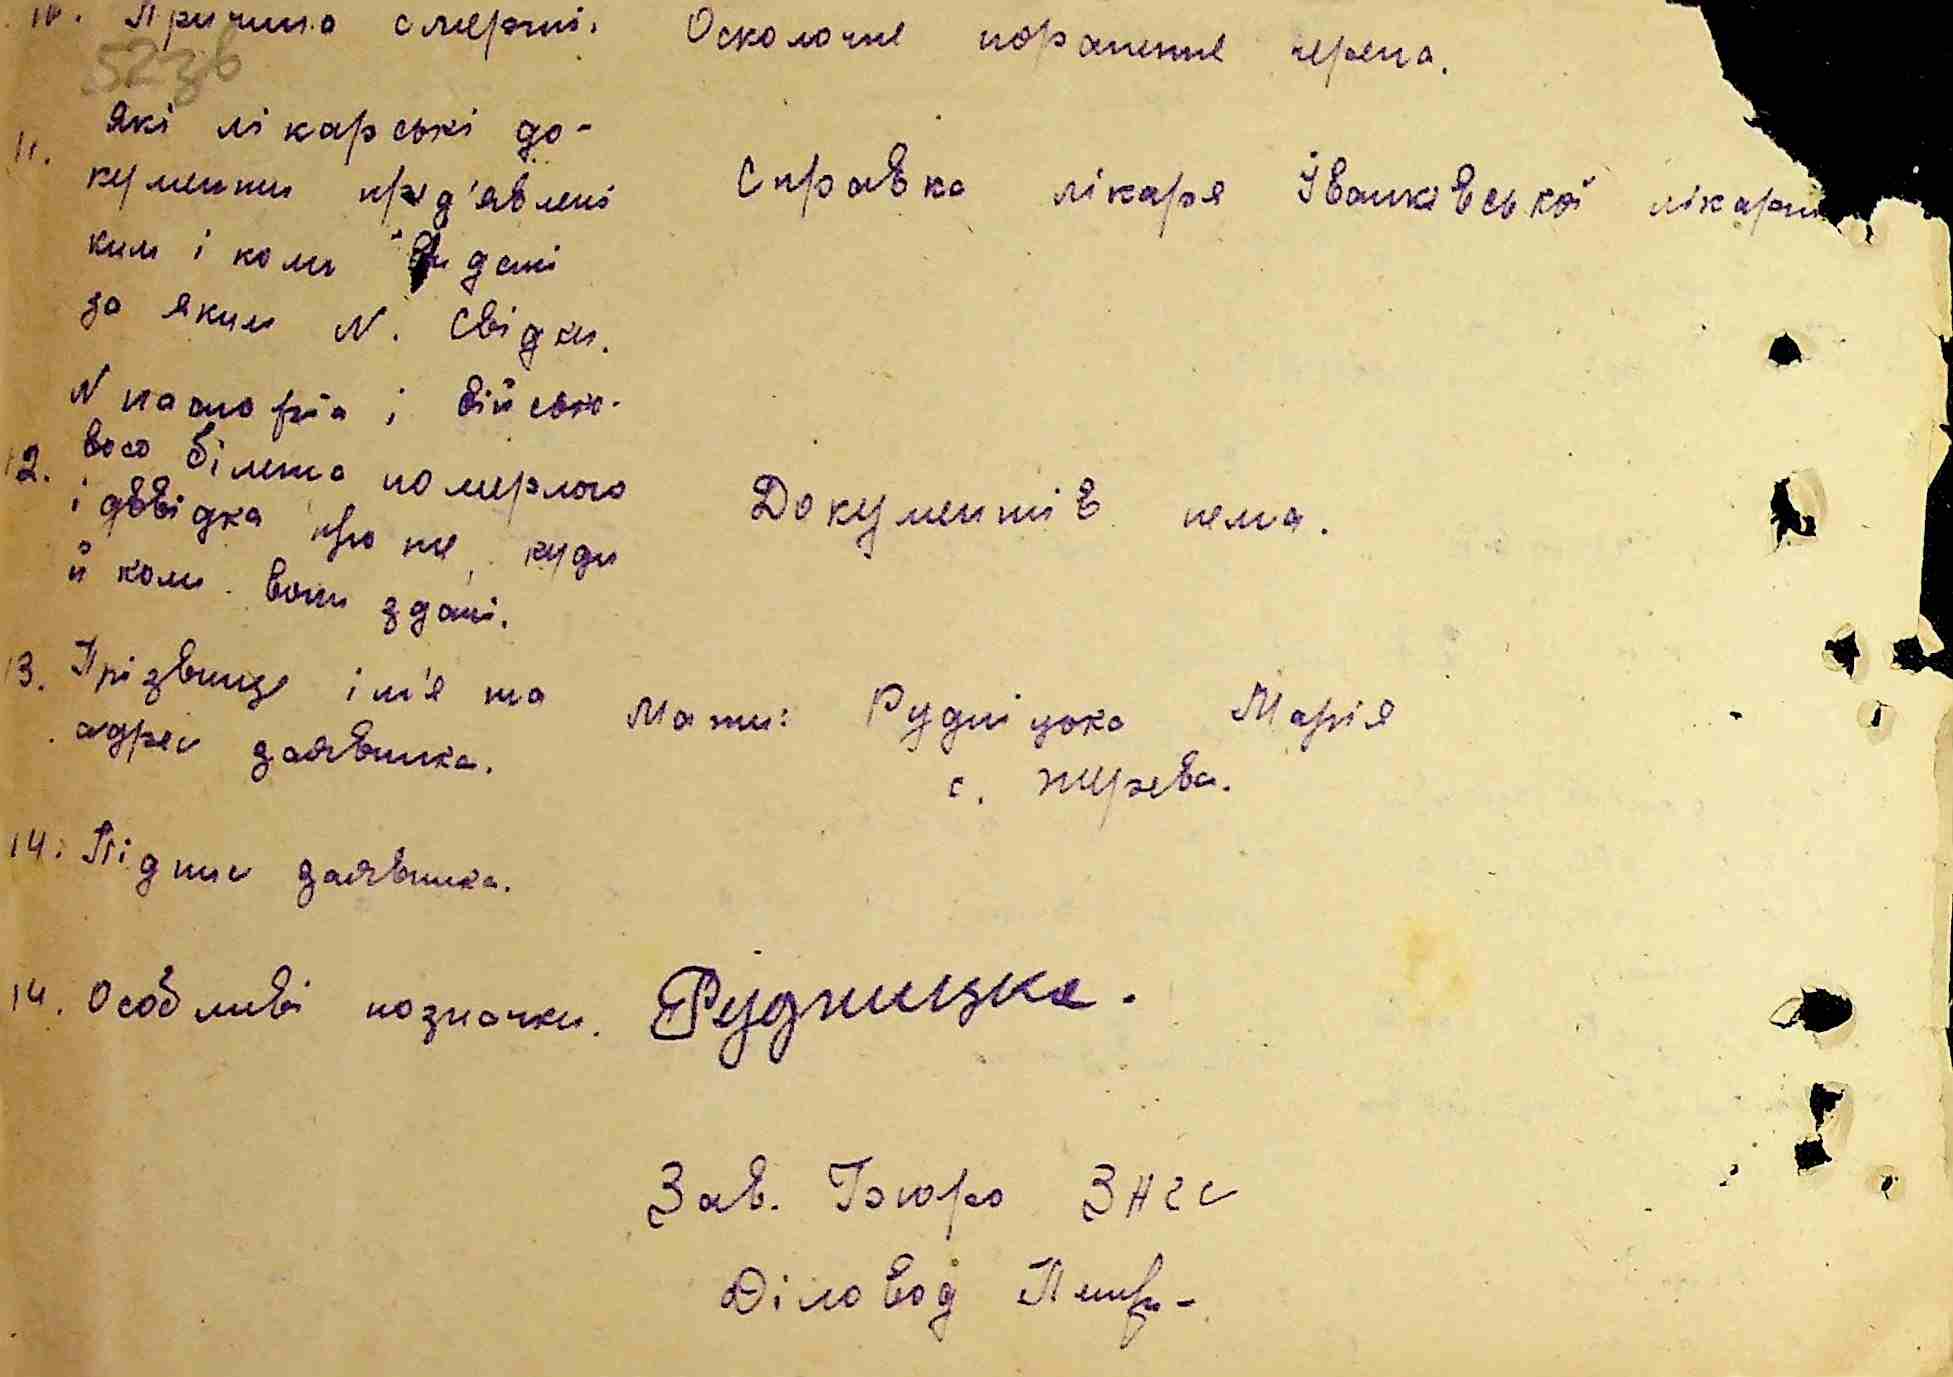 10. Причина смерті. Осколочне поранення черепа.
523б
Які лікарські до-
11. кументи пред'явлені Справка лікаря Іванківської лікарні
ким і коли видані
за яким N. Свідки.
N паспорта і військо-
12. вого білета померлого Документів нема.
і довідка про те, куди
й коли вони здані.
13. Прізвище ім'я та Мати: Рудніцька Марія
адрес заявника. с. Жерева.
14. Підпис заявника.
14. Особливі позначки. Рудницка.
Зав. Бюро ЗАГС
Діловод